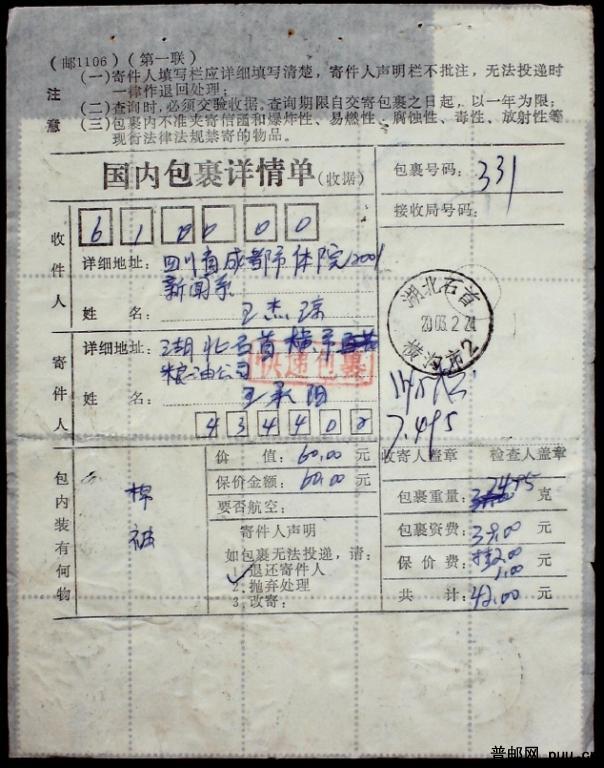 (邮1106)(第一联)
注意
(一)寄件人填写栏应详细填写清楚，寄件人声明栏不批注，无法投递时
一律作退回处理；
(二)查询时，必须交验收据。查询期限自交寄包裹之日起，以一年为限；
(三)包裹内不准夹寄信函和爆炸性、易燃性、腐蚀性、毒性、放射性等
现行法律法规禁寄的物品。
国内包裹详情单(收据)
包裹号码：331
接收局号码：
收件人
610000
详细地址：四川省成都市体院2001
新闻系
姓名：王杰琼
湖北石首
2003.2.24
横沟市2
寄件人
详细地址：湖北石首横沟市
粮油公司
快递包裹
姓名：王承阳
434402
7.495
收寄人盖章 检查人盖章
包内装有何物
棉被
价值：60.00元
保价金额：60.00元
要否航空：
寄件人声明
如包裹无法投递，请：
1.退还寄件人
2.抛弃处理
3.改寄：
包裹重量：7495克
包裹资费：39.00元
保价费：挂2.00元
1.00
共计：42.00元
普邮网 puu.cn